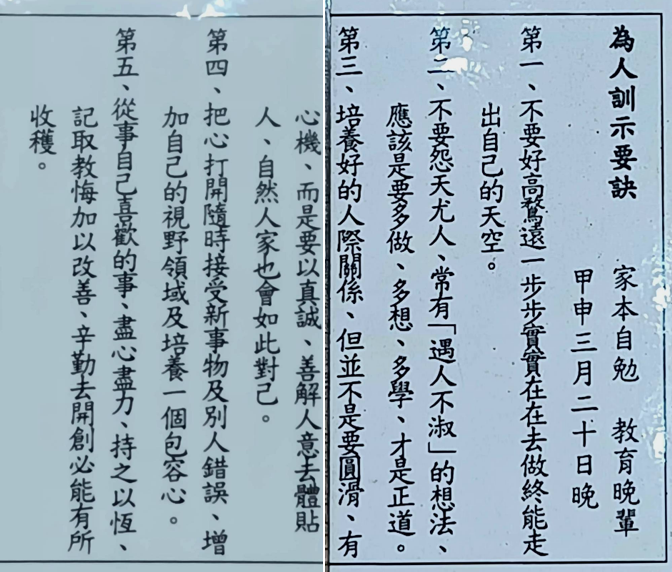 為人訓示要訣　家本自勉　教育晚輩
甲申三月二十日晚
第一、不要好高騖遠一步步實實在在去做終能走
出自己的天空。
第二、不要怨天尤人、常有「遇人不淑」的想法、
應該是要多做、多想、多學、才是正道。
第三、培養好的人際關係、但並不是要圓滑、有
心機、而是要以真誠、善解人意去體貼
人、自然人家也會如此對己。
第四、把心打開隨時接受新事物及別人錯誤、增
加自己的視野領域及培養一個包容心。
第五、從事自己喜歡的事、盡心盡力、持之以恆、
記取教悔加以改善、辛勤去開創必能有所
收穫。